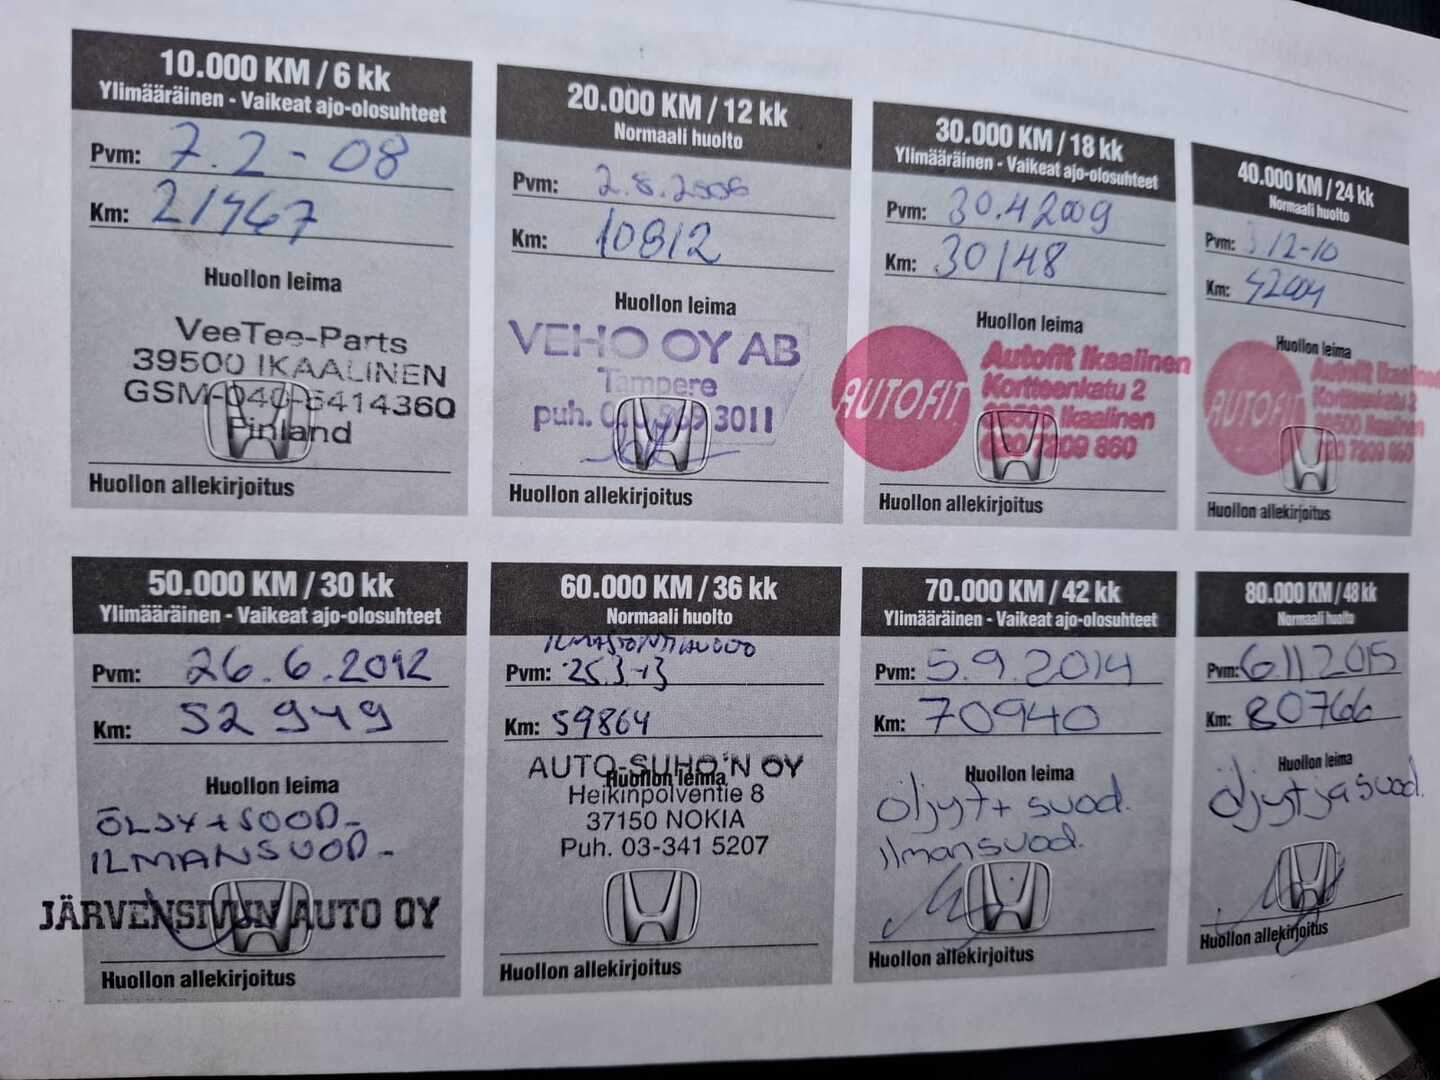 10.000 KM / 6 kk
Ylimääräinen - Vaikeat ajo-olosuhteet
Pvm: 7.2-08
Km: 21467
Huollon leima
VeeTee-Parts
39500 IKAALINEN
GSM-040-5414360
Finland
Huollon allekirjoitus
20.000 KM / 12 kk
Normaali huolto
Pvm: 2.8.2006
Km: 10812
Huollon leima
VEHO OY AB
Tampere
puh. 3011
Huollon allekirjoitus
30.000 KM / 18 kk
Ylimääräinen - Vaikeat ajo-olosuhteet
Pvm: 30.4 2009
Km: 30148
Huollon leima
AUTOFIT
Autofit Ikaalinen
Kortteenkatu 2
39500 Ikaalinen
020 7209 860
Huollon allekirjoitus
40.000 KM / 24 kk
Normaali huolto
Pvm: 3.12-10
Km: 42004
Huollon leima
AUTOFIT
Autofit Ikaalinen
Kortteenkatu 2
39500 Ikaalinen
020 7209 860
Huollon allekirjoitus
50.000 KM / 30 kk
Ylimääräinen - Vaikeat ajo-olosuhteet
Pvm: 26.6.2012
Km: 52949
Huollon leima
ÖLJY+SUOD-
ILMANSUOD-
JÄRVENSIVUN AUTO OY
Huollon allekirjoitus
60.000 KM / 36 kk
Normaali huolto
Pvm: 25.3-13
Km: 59864
Huollon leima
AUTO-SUHO'N OY
Heikinpolventie 8
37150 NOKIA
Puh. 03-341 5207
Huollon allekirjoitus
70.000 KM / 42 kk
Ylimääräinen - Vaikeat ajo-olosuhteet
Pvm: 5.9.2014
Km: 70940
Huollon leima
öljyt+ suod.
ilmansuod.
Huollon allekirjoitus
80.000 KM / 48 kk
Normaali huolto
Pvm: 6.11 2015
Km: 80766
Huollon leima
öljyt ja suod.
Huollon allekirjoitus